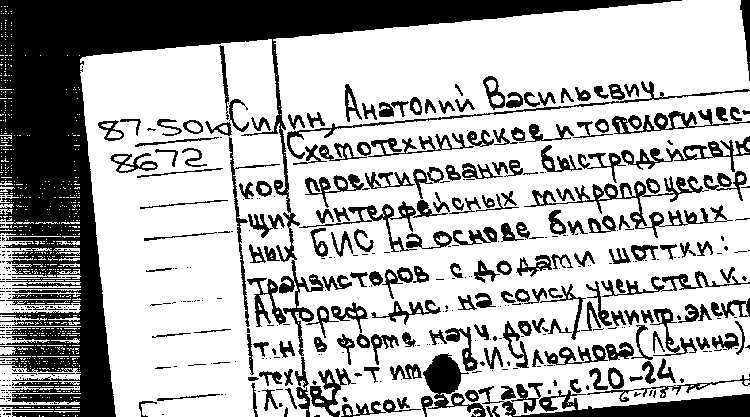 87-50к
8672
Силин, Анатолий Васильевич.
Схемотехническое и топологичес-
кое проектирование быстродействую
-щих интерфейсных микропроцессор
ных БИС на основе биполярных
транзисторов с додами шоттки:
Автореф. дис. на соиск учен. степ. к.
т.н в форме науч. докл./Ленингр. электр
-техн. ин-т им В.И.Ульянова (Ленина).
Л., 1987.
Список работ авт.: с.20-24.
Экз №4